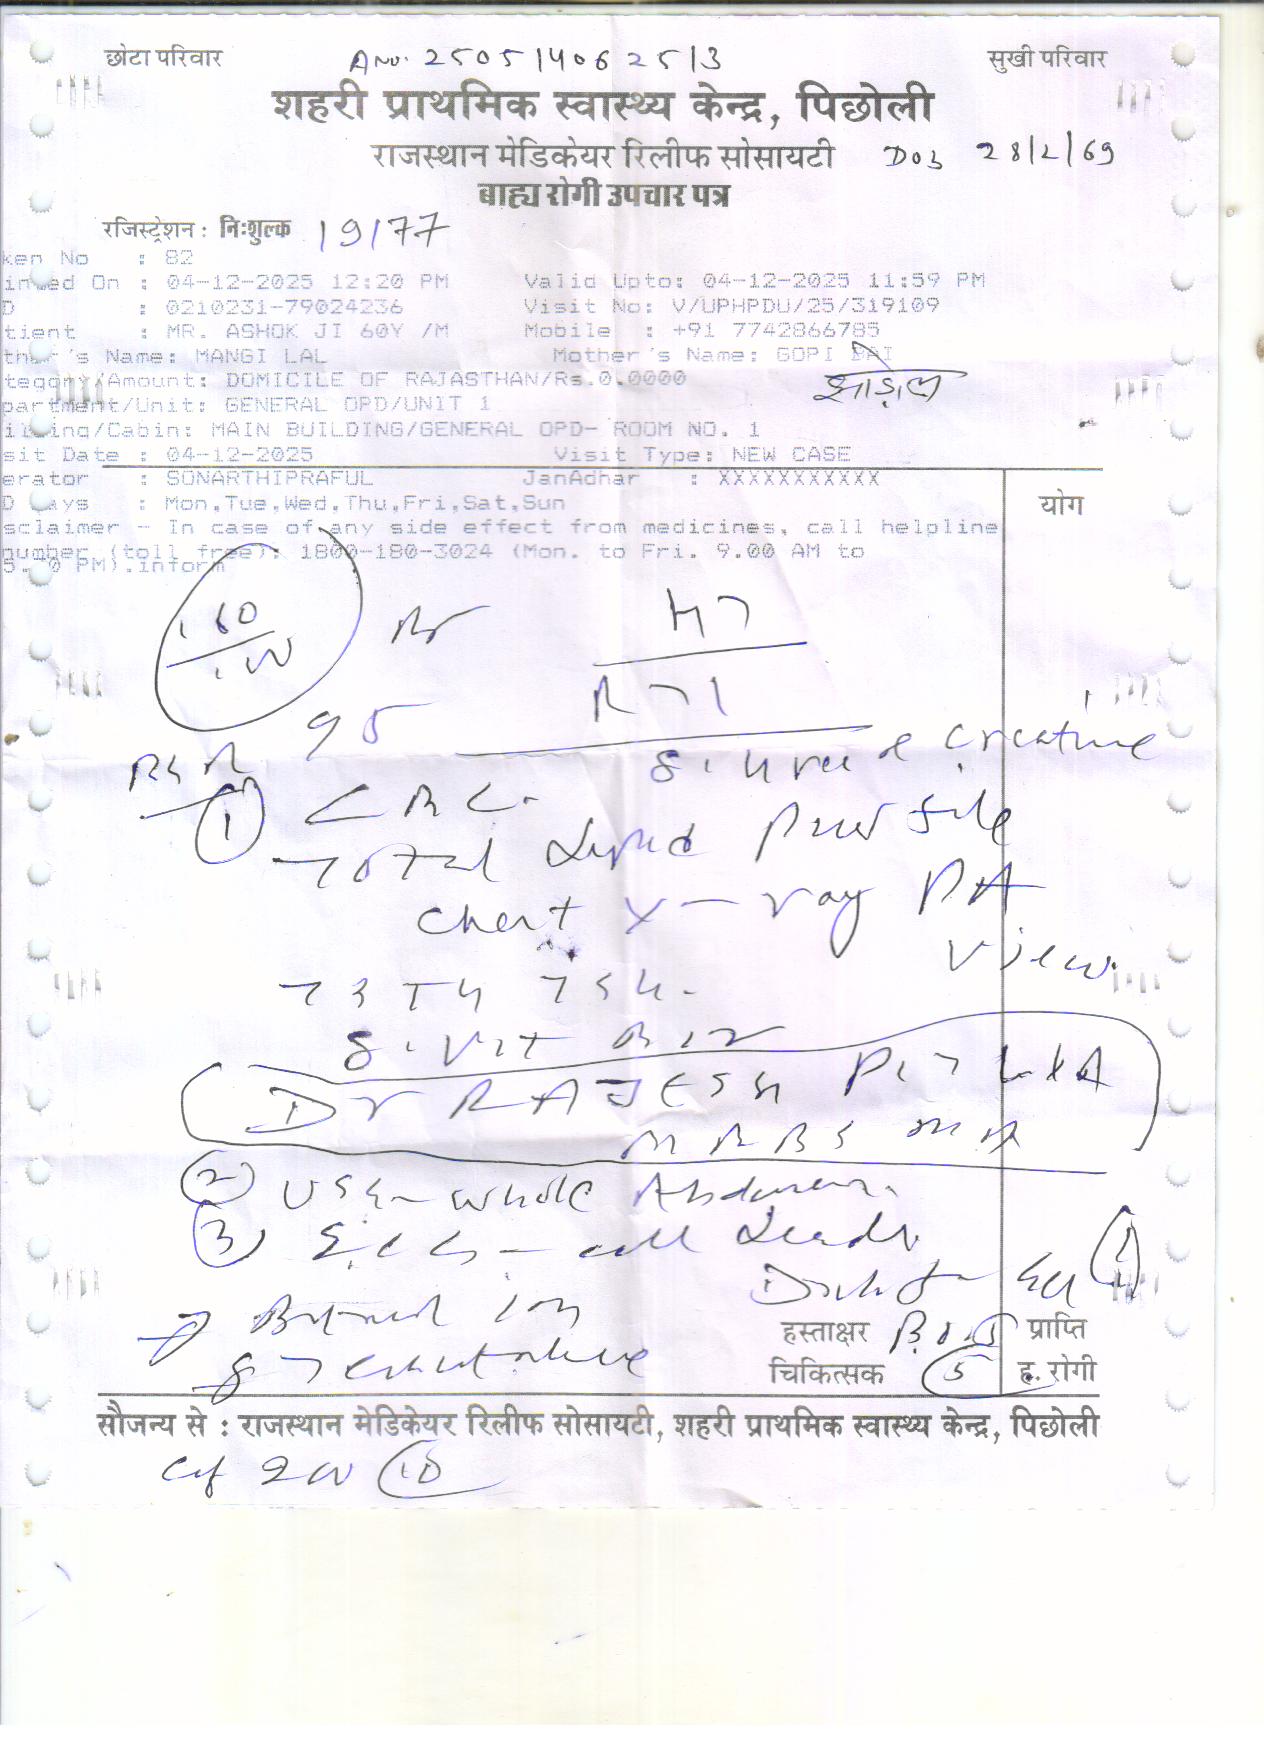 छोटा परिवार A No. 250514062513 सुखी परिवार
शहरी प्राथमिक स्वास्थ्य केन्द्र, पिछोली
राजस्थान मेडिकेयर रिलीफ सोसायटी DOB 28/2/69
बाह्य रोगी उपचार पत्र
रजिस्ट्रेशन : निःशुल्क 19177
ken No : 82
On : 04-12-2025 12:20 PM Valid Upto: 04-12-2025 11:59 PM
D : 0210231-79024236 Visit No: V/UPHPDU/25/319109
tient : MR. ASHOK JI 60Y /M Mobile : +91 7742866785
's Name: MANGI LAL Mother's Name: GOPI BAI
tegory/Amount: DOMICILE OF RAJASTHAN/Rs.0.0000
partment/Unit: GENERAL OPD/UNIT 1
ilding/Cabin: MAIN BUILDING/GENERAL OPD- ROOM NO. 1
sit Date : 04-12-2025 Visit Type: NEW CASE
erator : SONARTHIPRAFUL JanAdhar : XXXXXXXXXXX
D Days : Mon,Tue,Wed,Thu,Fri,Sat,Sun योग
sclaimer - In case of any side effect from medicines, call helpline
number (toll free): 1800-180-3024 (Mon. to Fri. 9.00 AM to
5. 0 PM).inform
160
100
95
S. Urea & Creatine
① CBC.
Total Lipid Profile
Chest X-ray PA
View.
T3 T4 TSH.
S. Vit B12
Dr RAJESH
MBBS MD
② USG - Whole Abdomen.
③ E.C.G - all Leads.
हस्ताक्षर प्राप्ति
चिकित्सक ⑤ ह. रोगी
सौजन्य से : राजस्थान मेडिकेयर रिलीफ सोसायटी, शहरी प्राथमिक स्वास्थ्य केन्द्र, पिछोली
⑩